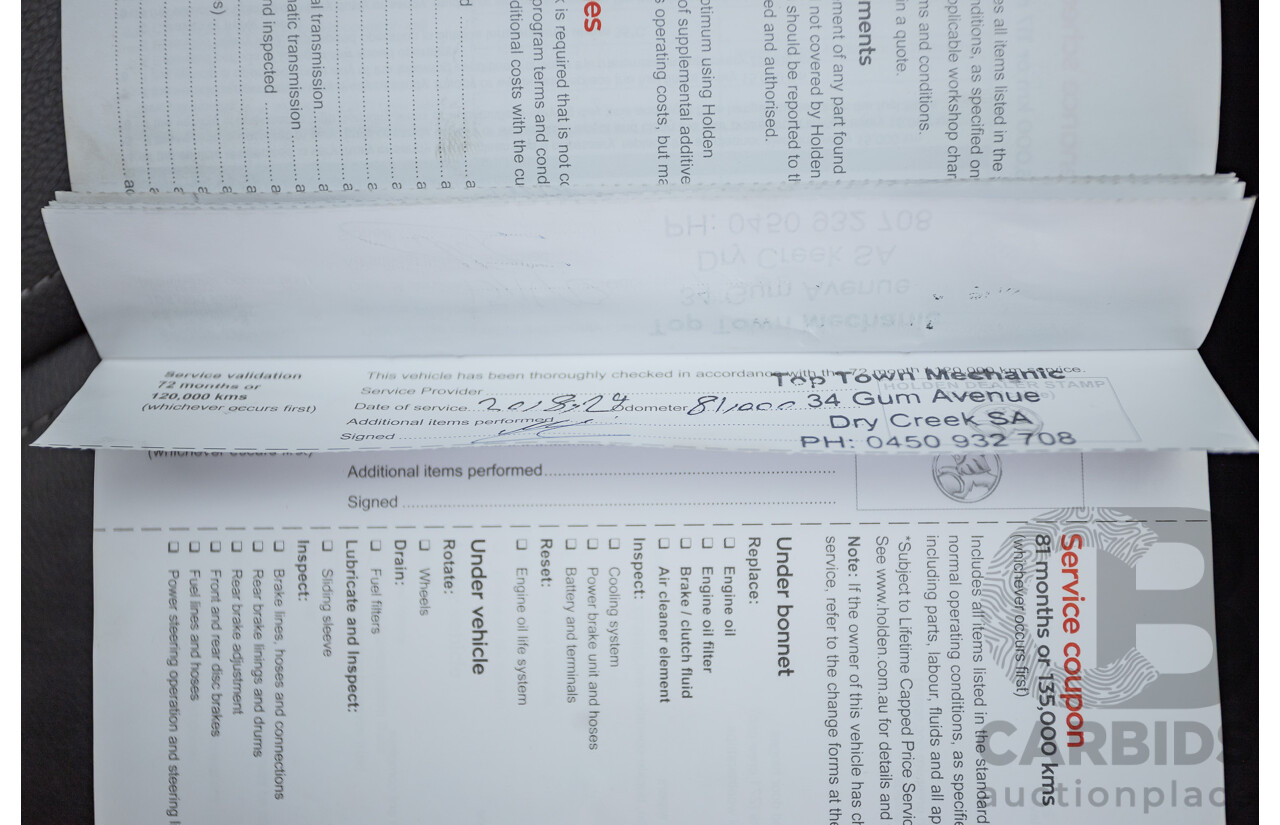 es
k is required that is not co
program terms and cond
ditional costs with the cu
al transmission
atic transmission
nd inspected
es all items listed in the
nditions, as specified on
pplicable workshop char
ms and conditions.
in a quote.
ments
ment of any part found
not covered by Holden
should be reported to th
ed and authorised.
ptimum using Holden
of supplemental additive
s operating costs, but ma
PH: 0450 932 708
Dry Creek SA
34 Gum Avenue
Top Town Mechanic
Service validation
72 months or
120,000 kms
(whichever occurs first)
This vehicle has been thoroughly checked in accordance with the 72 month / 120,000 km service.
Service Provider
Date of service Odometer 81,000
Additional items performed
Signed
HOLDEN DEALER STAMP
Top Town Mechanic
34 Gum Avenue
Dry Creek SA
PH: 0450 932 708
(whichever occurs first)
Additional items performed
Signed
Service coupon
81 months or 135,000 kms
(whichever occurs first)
Includes all items listed in the standard
normal operating conditions, as specifie
including parts, labour, fluids and all ap
*Subject to Lifetime Capped Price Servic
See www.holden.com.au for details and
Note: If the owner of this vehicle has ch
service, refer to the change forms at the
Under bonnet
Replace:
❑ Engine oil
❑ Engine oil filter
❑ Brake / clutch fluid
❑ Air cleaner element
Inspect:
❑ Cooling system
❑ Power brake unit and hoses
❑ Battery and terminals
Reset:
❑ Engine oil life system
Under vehicle
Rotate:
❑ Wheels
Drain:
❑ Fuel filters
Lubricate and Inspect:
❑ Sliding sleeve
Inspect:
❑ Brake lines, hoses and connections
❑ Rear brake linings and drums
❑ Rear brake adjustment
❑ Front and rear disc brakes
❑ Fuel lines and hoses
❑ Power steering operation and steering l
CARBIDS
auctionplac